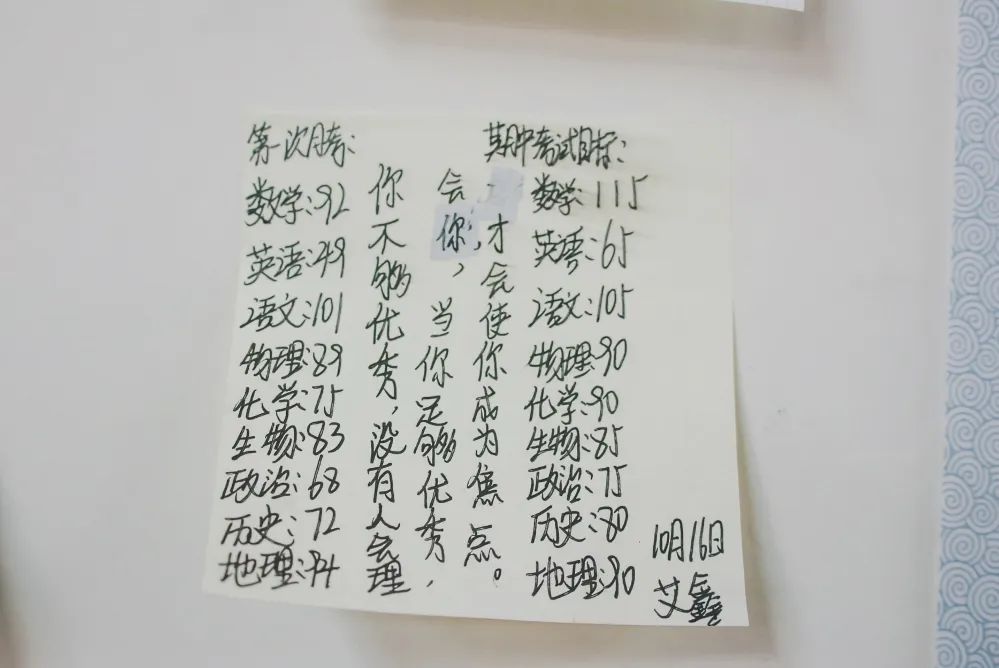 第一次月考:
数学:92
英语:49
语文:101
物理:89
化学:75
生物:83
政治:68
历史:72
地理:94
你不够优秀,没有人会理
会你,当你足够优秀,
才会使你成为焦点。
期中考试目标:
数学:115
英语:65
语文:105
物理:90
化学:90
生物:85
政治:75
历史:80
地理:90
10月16日
艾鑫